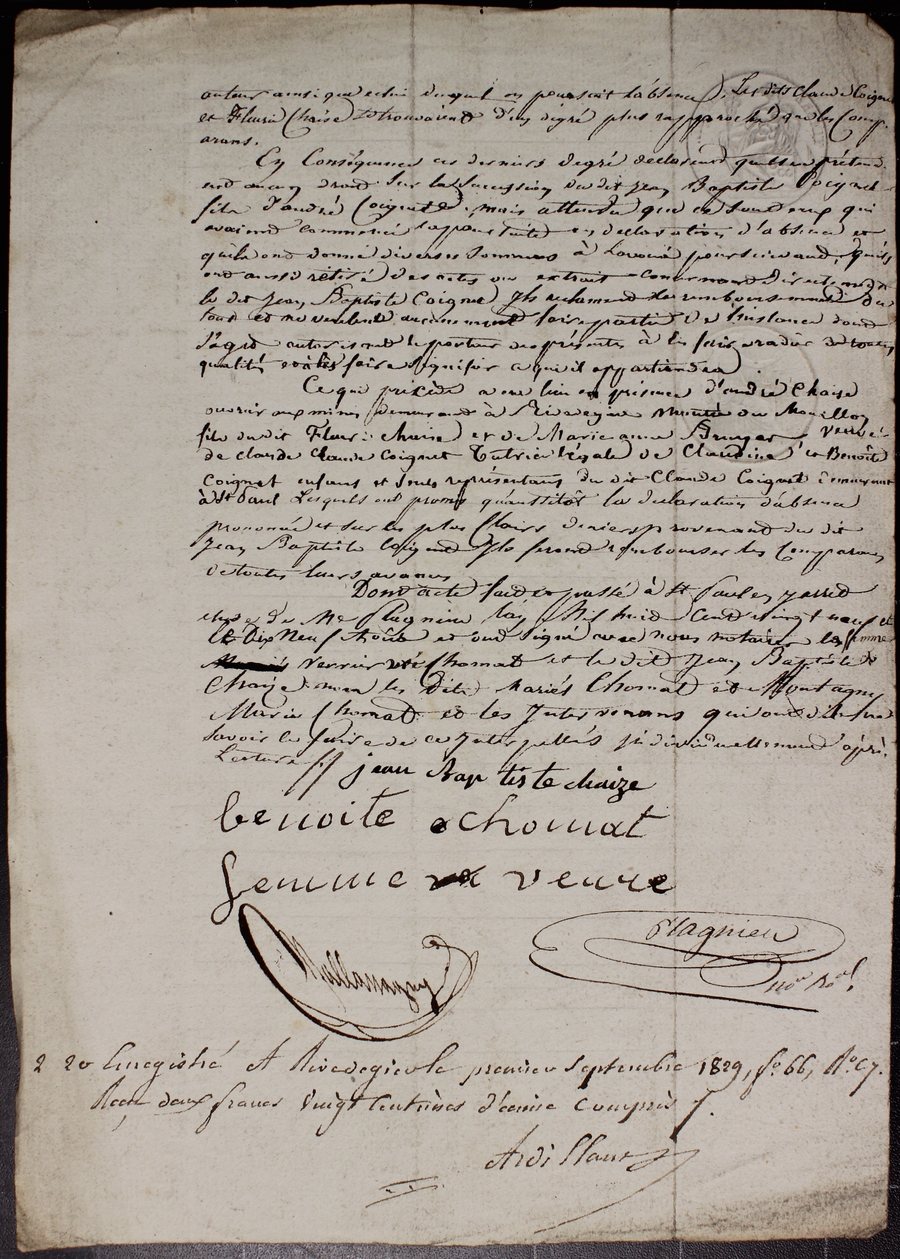 auteur ainsi que celui duquel on poursuit l'absence. Les dits Claude Coignet
et Fleurie Chaise se trouvaient d'un dégré plus rapproché que les Comp-
arans.
En Conséquence ces derniers degré déclarent qu'ils ne préten-
ent aucun droit sur la succession du dit Jean Baptiste Coignet
fils d'andré Coignet, mais attendu que ce sont eux qui
avaient commencé la poursuite en déclaration d'absence et
qu'ils ont donné diverses sommes à l'avoué poursuivant, qu'ils
ont aussi retiré des actes ou extrait concernant directement
le dit Jean Baptiste Coignet Ils reclament le remboursement du
tout et ne veulent aucunement faire partie de l'instance dont
s'agit autorisent le porteur des presentes à les faire radier de toutes
qualités et à les faire signifier a qui il appartiendra.
Ce qui précéde a eu lieu en présence d'andré Chaise
ouvrier aux mines demeurant à Rivedegier du Mouillon
fils du dit Fleurie chaise et de Marie anne Bruyas veuve
de claude Claude Coignet Tutrice légale de Claudine et Benoîte
Coignet enfans et seuls représentans du dit Claude Coignet demeurant
à St Paul Lesquels ont promis qu'aussitôt la declaration d'absence
prononcé et sur les plus Clairs deniers provenant du dit
Jean Baptiste Coignet Ils feront rembourser les Comparans
de toutes leurs avances
Dont acte fait et passé à St Paul en jarret
etude de Me Plagnieu l'an Mil huit Cent vingt neuf et
le Dix Neuf Août et ont signé avec nous notaires la femme
Verrier née Chomat et le dit Jean Baptiste
Chaize non les dits Mariés Chomat et Montagny
Marie Chomat et les Intervenans qui ont dit ne
savoir le faire de ce Interpellés Individuellement après
Lecture //
jean Baptiste chaize
benoite chomat
femme veure
Plagnieu
nore Ral
2 20 Enregistré A Rivedegier le premier septembre 1829, fo 66, Ro C7.
Reçu deux francs vingt Centimes d'ecime compris.
Ardillan